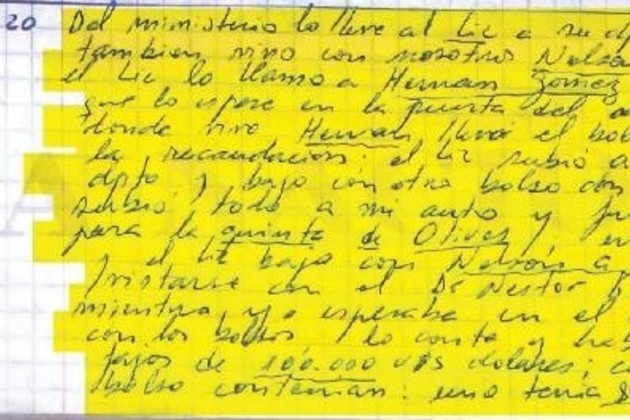 20 Del ministerio lo lleve al Lic a su dp
tambien vino con nosotros Nelso
el Lic lo llamo a Hernan Gomez
que lo espere en la puerta del
donde vive Hernan llevó el bol
la recaudacion; el Lic subió a
dpto. y bajo con otro bolso con
subio todo a mi auto y fu
para la quinta de Olivos, en
y el Lic bajo con Nelson a
tristarse con el Dr Nestor
mientras yo esperaba en el
con los bolsos lo conte y hab
fajos de 100.000 U$S dolares; c
bolso contenian: uno tenia $